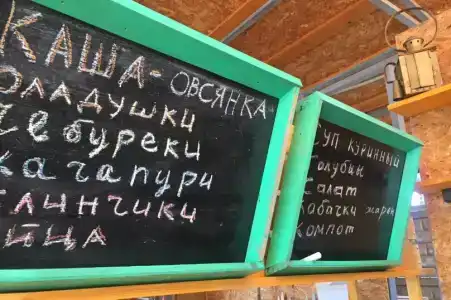 КАША - ОВСЯНКА
Оладушки
Чебуреки
Качапури
Блинчики
Яйца
СУП КУРИННЫЙ
Голубцы
Салат
Кабачки жарен
Компот